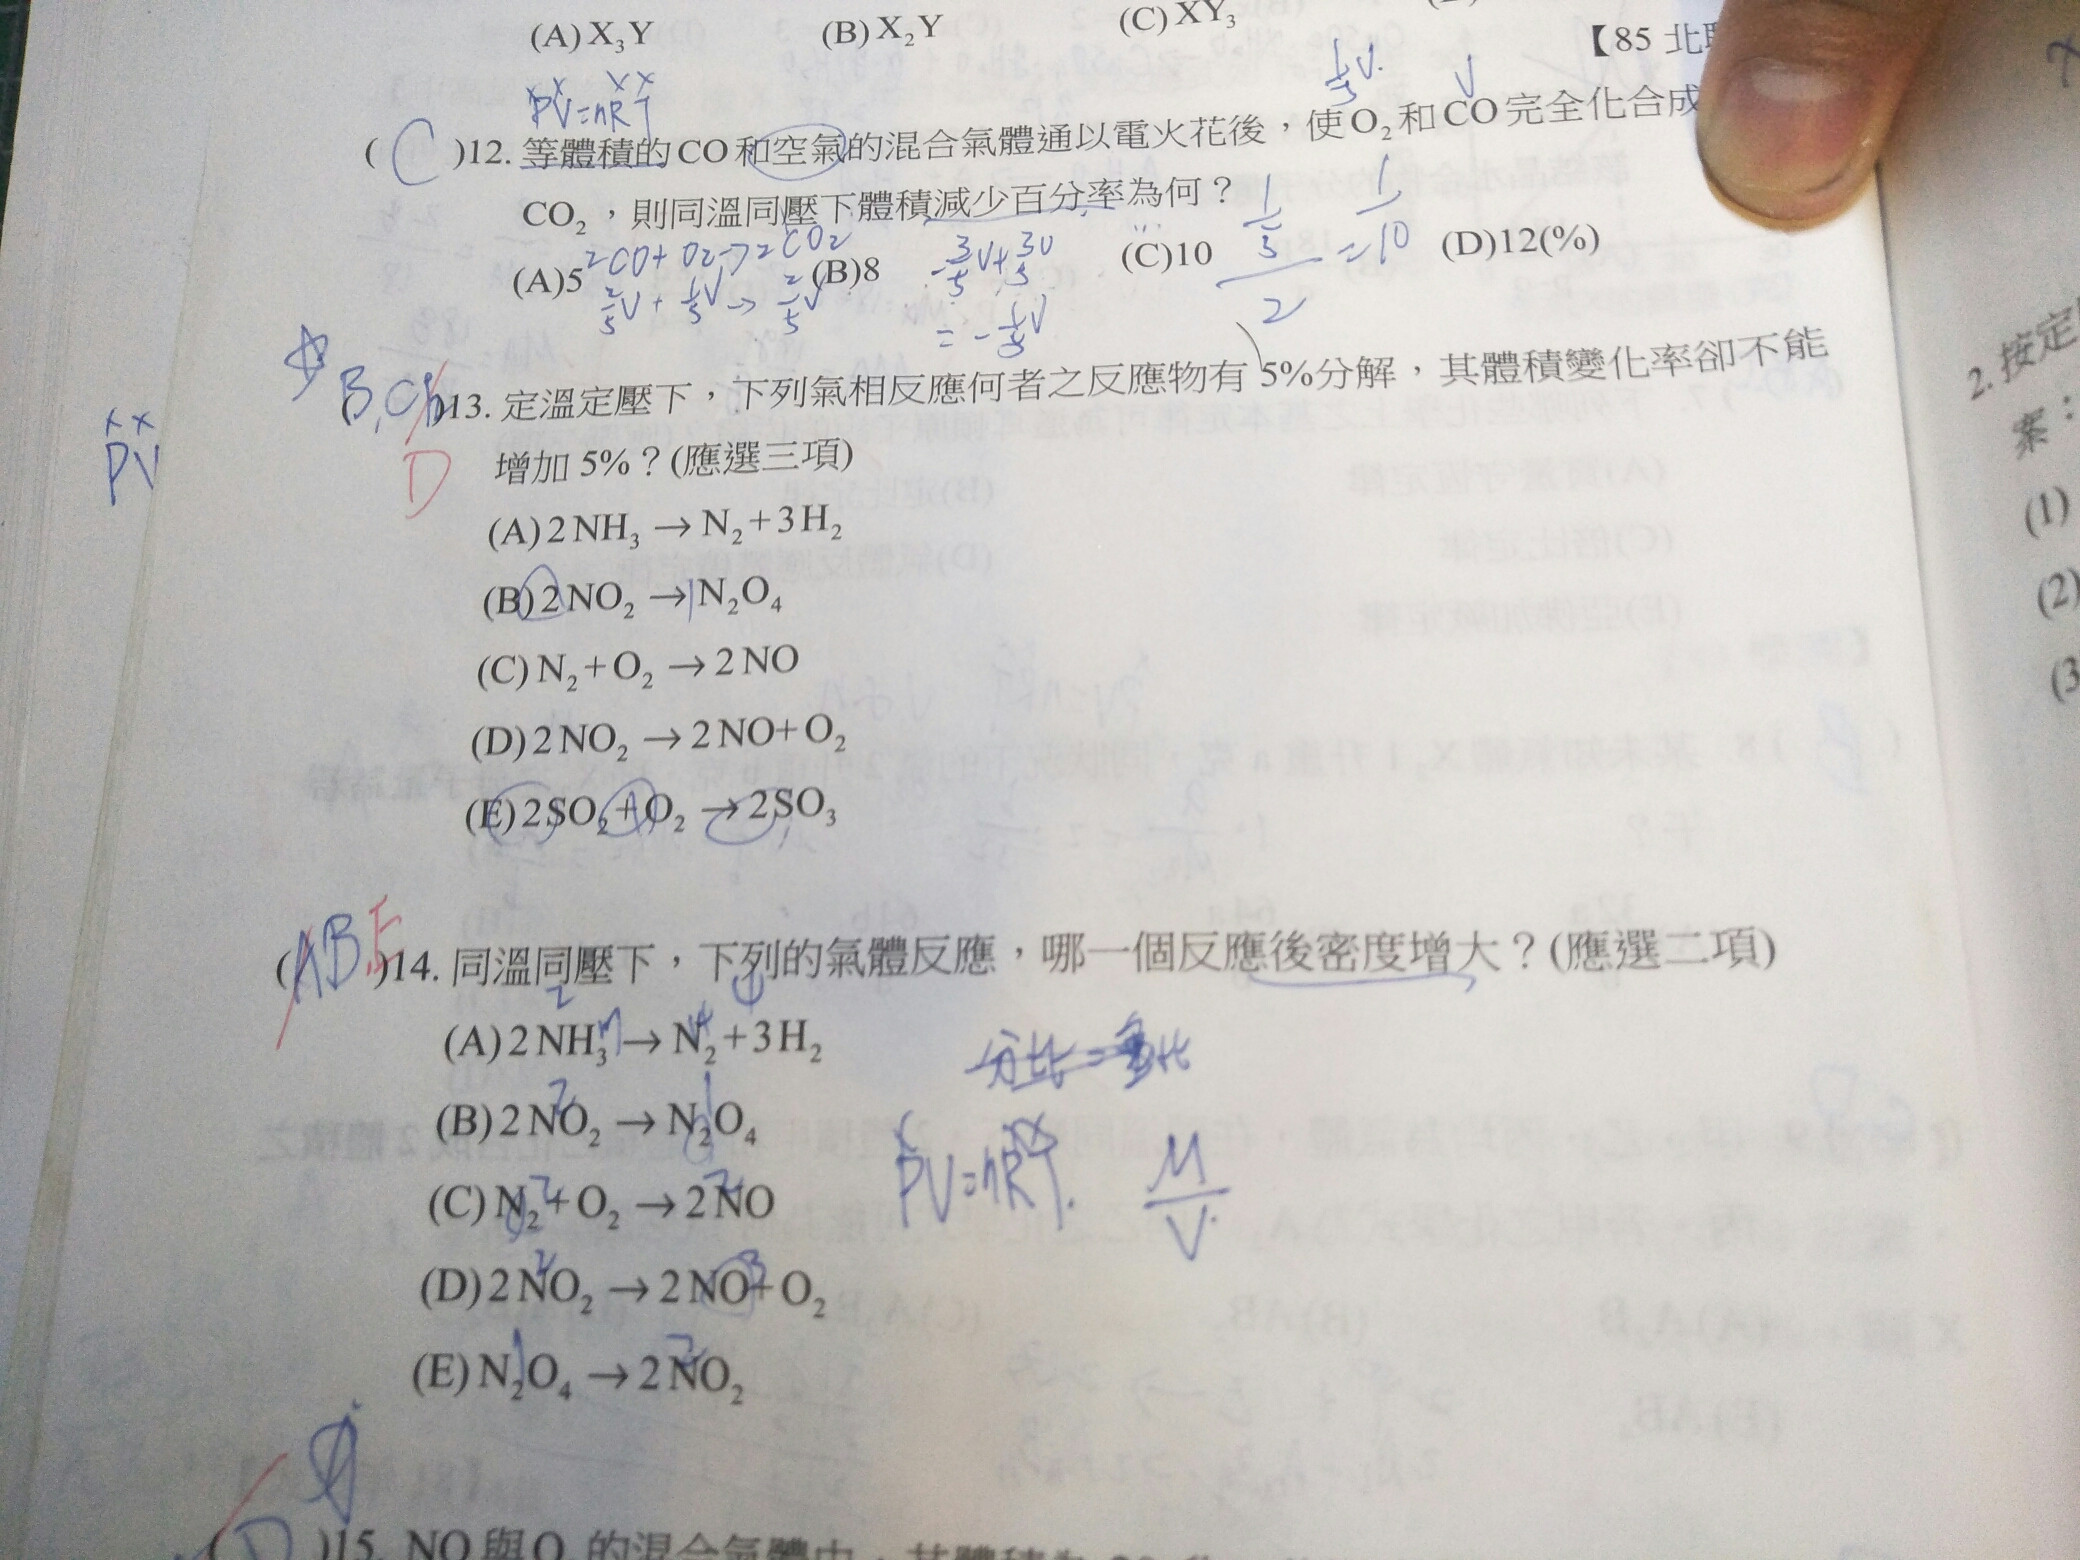 (A) X₃Y (B) X₂Y (C) XY₃
【85 北
PV=nRT
1/5 V. V
( C )12. 等體積的 CO 和空氣的混合氣體通以電火花後，使 O₂ 和 CO 完全化合成
CO₂，則同溫同壓下體積減少百分率為何？
(A)5 (B)8 (C)10 (D)12(%)
2CO+O₂→2CO₂
2/5V + 1/5V → 2/5V
-3/5V+
= -1/5V
1/5
/2 = 1/10
B,C D
PV
)13. 定溫定壓下，下列氣相反應何者之反應物有 5%分解，其體積變化率卻不能
增加 5%？(應選三項)
(A) 2 NH₃ → N₂+3H₂
(B) 2 NO₂ → N₂O₄
(C) N₂+O₂ → 2 NO
(D) 2 NO₂ → 2 NO+O₂
(E) 2SO₂+O₂ → 2SO₃
(ABE)14. 同溫同壓下，下列的氣體反應，哪一個反應後密度增大？(應選二項)
(A) 2 NH₃ → N₂+3H₂
(B) 2 NO₂ → N₂O₄
(C) N₂+O₂ → 2 NO
(D) 2 NO₂ → 2 NO+O₂
(E) N₂O₄ → 2 NO₂
PV=nRT. M/V.
( D )15. NO 與 O 的混合氣體中，其體積為
2. 按定
案：
(1)
(2)
(3